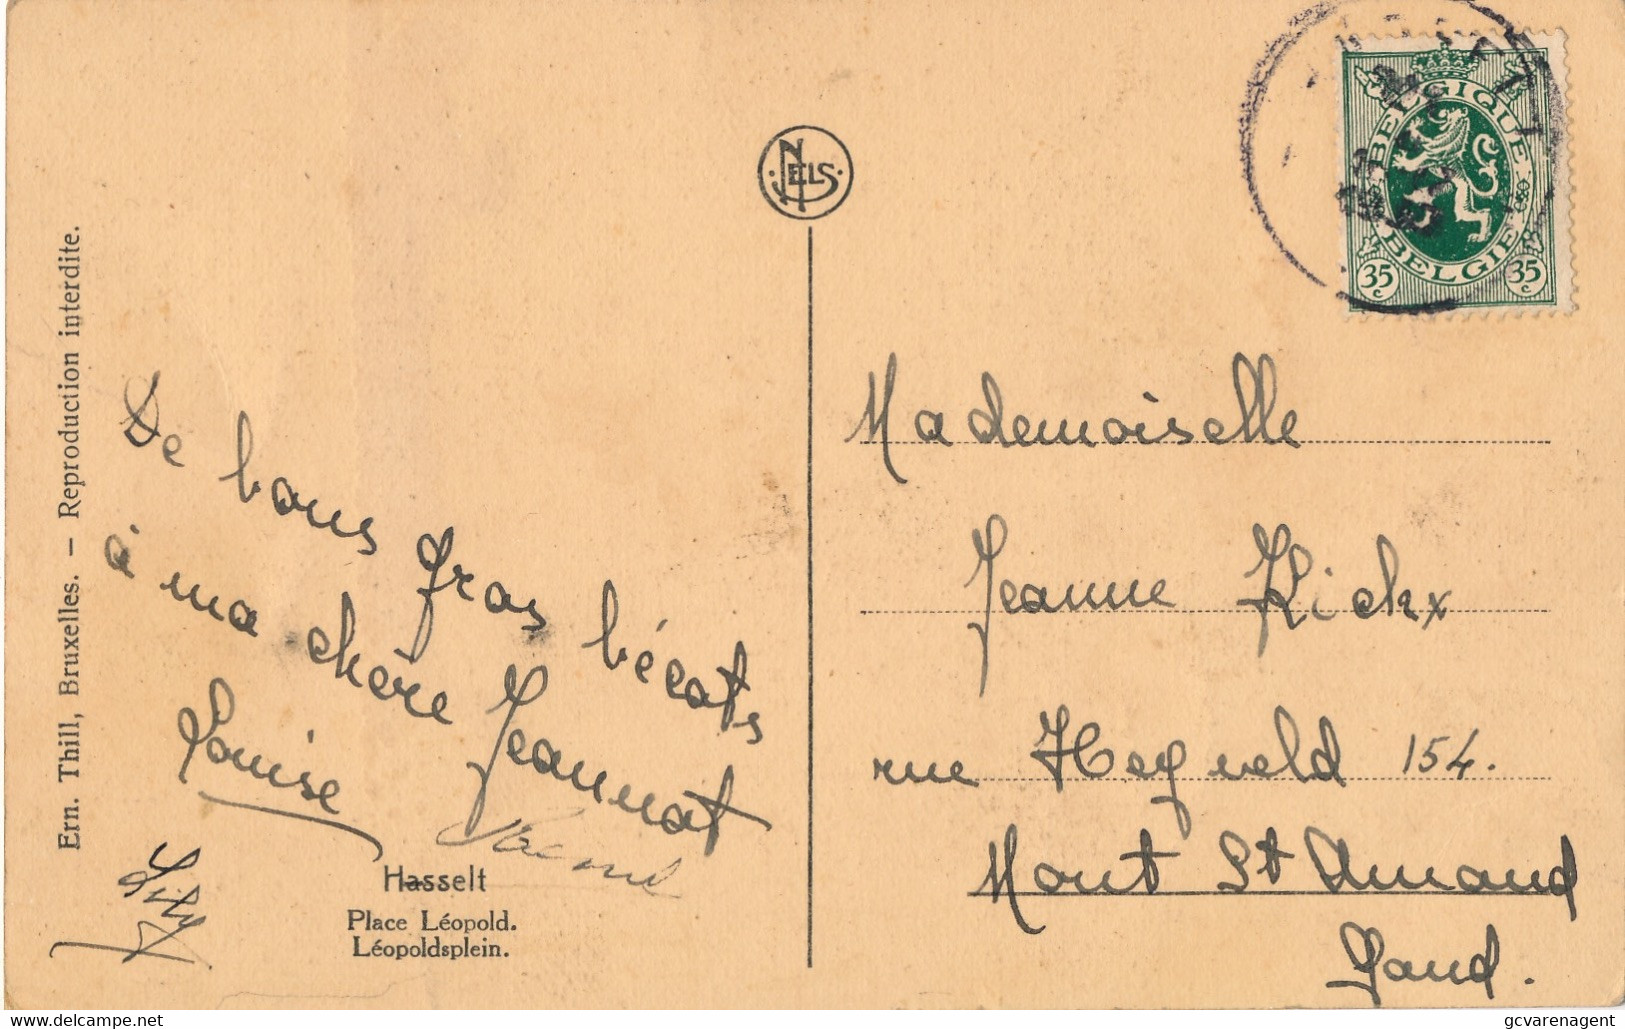 Ern. Thill, Bruxelles. — Reproduction interdite.
NELS
BELGIQUE
BELGIE
35 c
35 c
De bons gros bécots
à ma chère Jeannot
Louise
Lily
Hasselt
Place Léopold.
Léopoldsplein.
Mademoiselle
Jeanne Kickx
rue Heyveld 154.
Mont St Amand
Gand.
gcvarenagent